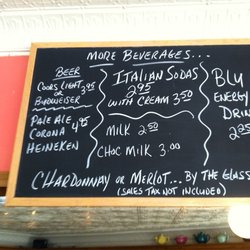 MORE BEVERAGES...
BEER
COORS LIGHT 3.95
OR
BUDWEISER
PALE ALE
CORONA 4.95
HEINEKEN
ITALIAN SODAS
2.95
WITH CREAM 3.50
MILK 2.50
CHOC MILK 3.00
BLU
ENERGY
DRIN
CHARDONNAY OR MERLOT... BY THE GLASS
(SALES TAX NOT INCLUDED)